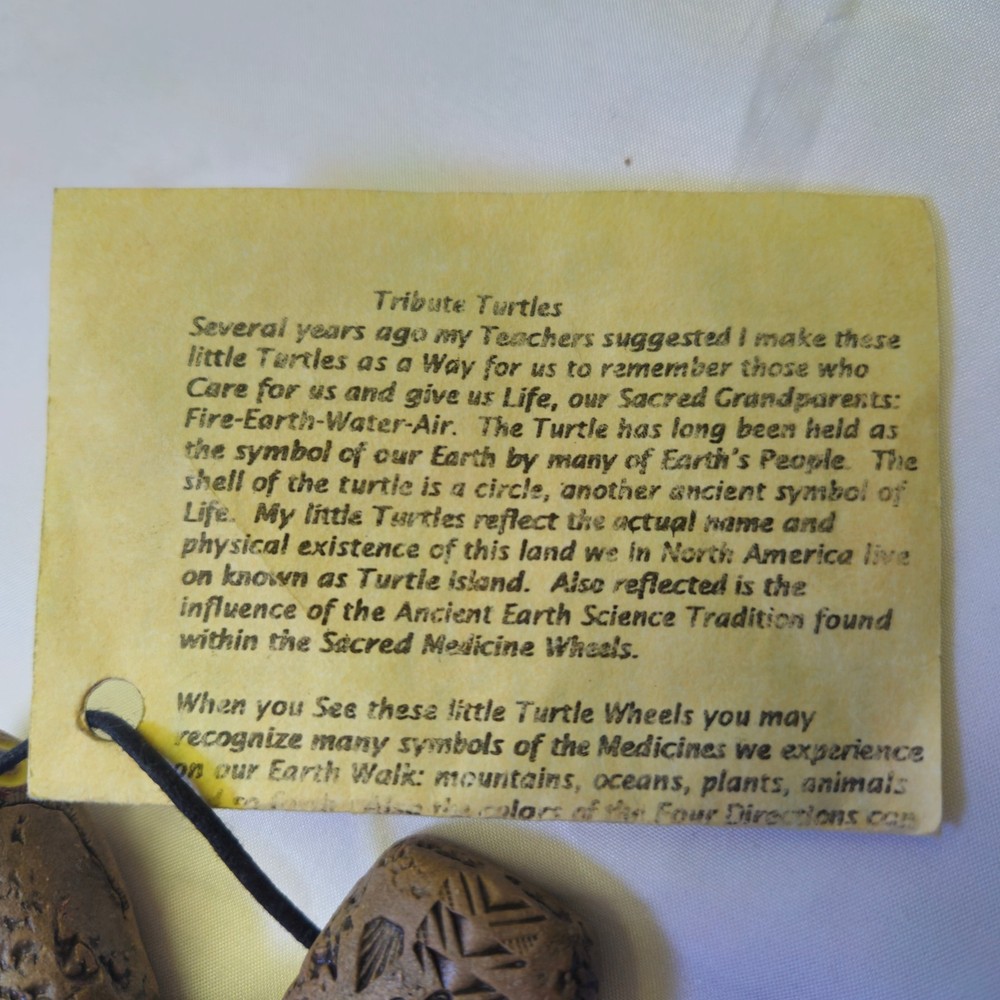 Tribute Turtles
Several years ago my Teachers suggested I make these
little Turtles as a Way for us to remember those who
Care for us and give us Life, our Sacred Grandparents:
Fire-Earth-Water-Air. The Turtle has long been held as
the symbol of our Earth by many of Earth's People. The
shell of the turtle is a circle, another ancient symbol of
Life. My little Turtles reflect the actual name and
physical existence of this land we in North America live
on known as Turtle Island. Also reflected is the
influence of the Ancient Earth Science Tradition found
within the Sacred Medicine Wheels.
When you See these little Turtle Wheels you may
recognize many symbols of the Medicines we experience
on our Earth Walk: mountains, oceans, plants, animals
Also the colors of the Four Directions can